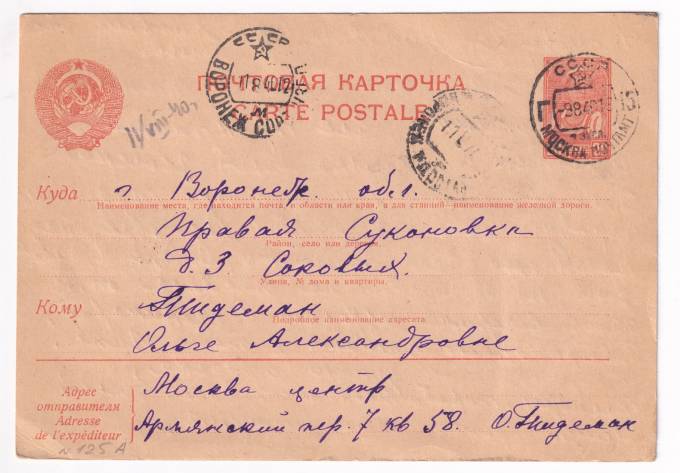 СССР
ПОЧТОВАЯ КАРТОЧКА
CARTE POSTALE
11/VIII-40г.
ВОРОНЕЖ
СССР
МОСКВА ПОЧТАМТ
Куда г. Воронеж обл.
Наименование места, где находится почта, и области или края, а для станций–наименование железной дороги.
Правая Сукановка
Район, село или деревня.
д. 3 Соковых.
Улица, № дома и квартиры.
Кому Тидеман
Подробное наименование адресата
Ольге Александровне
Адрес отправителя
Adresse de l'expéditeur
Москва центр
Армянский пер. 7 кв 58. О. Тидеман
N 125 А